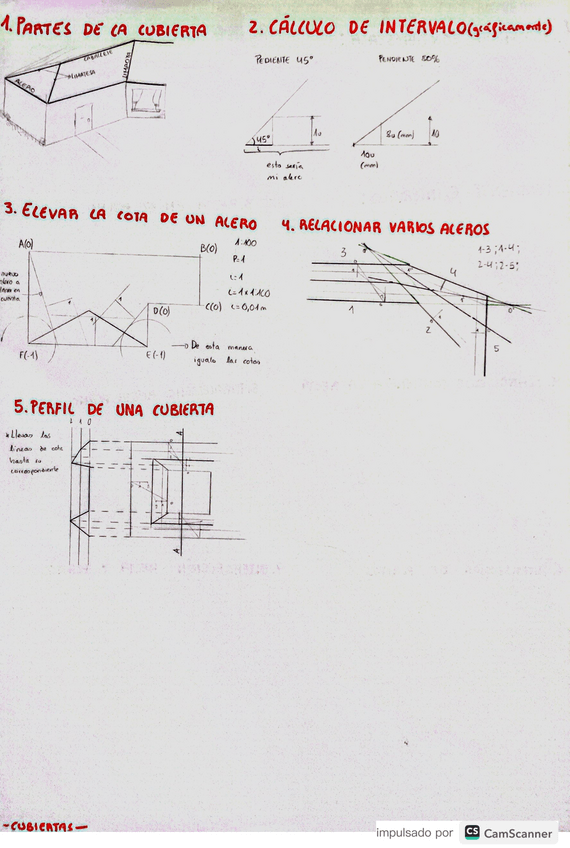 1. PARTES DE LA CUBIERTA
CABALLETE
LIMATESA
ALERO
2. CÁLCULO DE INTERVALO (gráficamente)
PEDIENTE 45°
45°
1u
esto sería
mi alero
PENDIENTE 80%
8u (mm)
10u
(mm)
3. ELEVAR LA COTA DE UN ALERO
A(0)
B(0)
1:100
P=1
D(0)
C(0)
F(-1)
E(-1)
De esta manera
igualo las cotas
4. RELACIONAR VARIOS ALEROS
1-3; 1-4;
2-4; 2-5;
3
4
1
2
5
5. PERFIL DE UNA CUBIERTA
* Llevar las
líneas de cota
hasta su
correspondiente
1 0
A
A
-CUBIERTAS-
impulsado por CS CamScanner